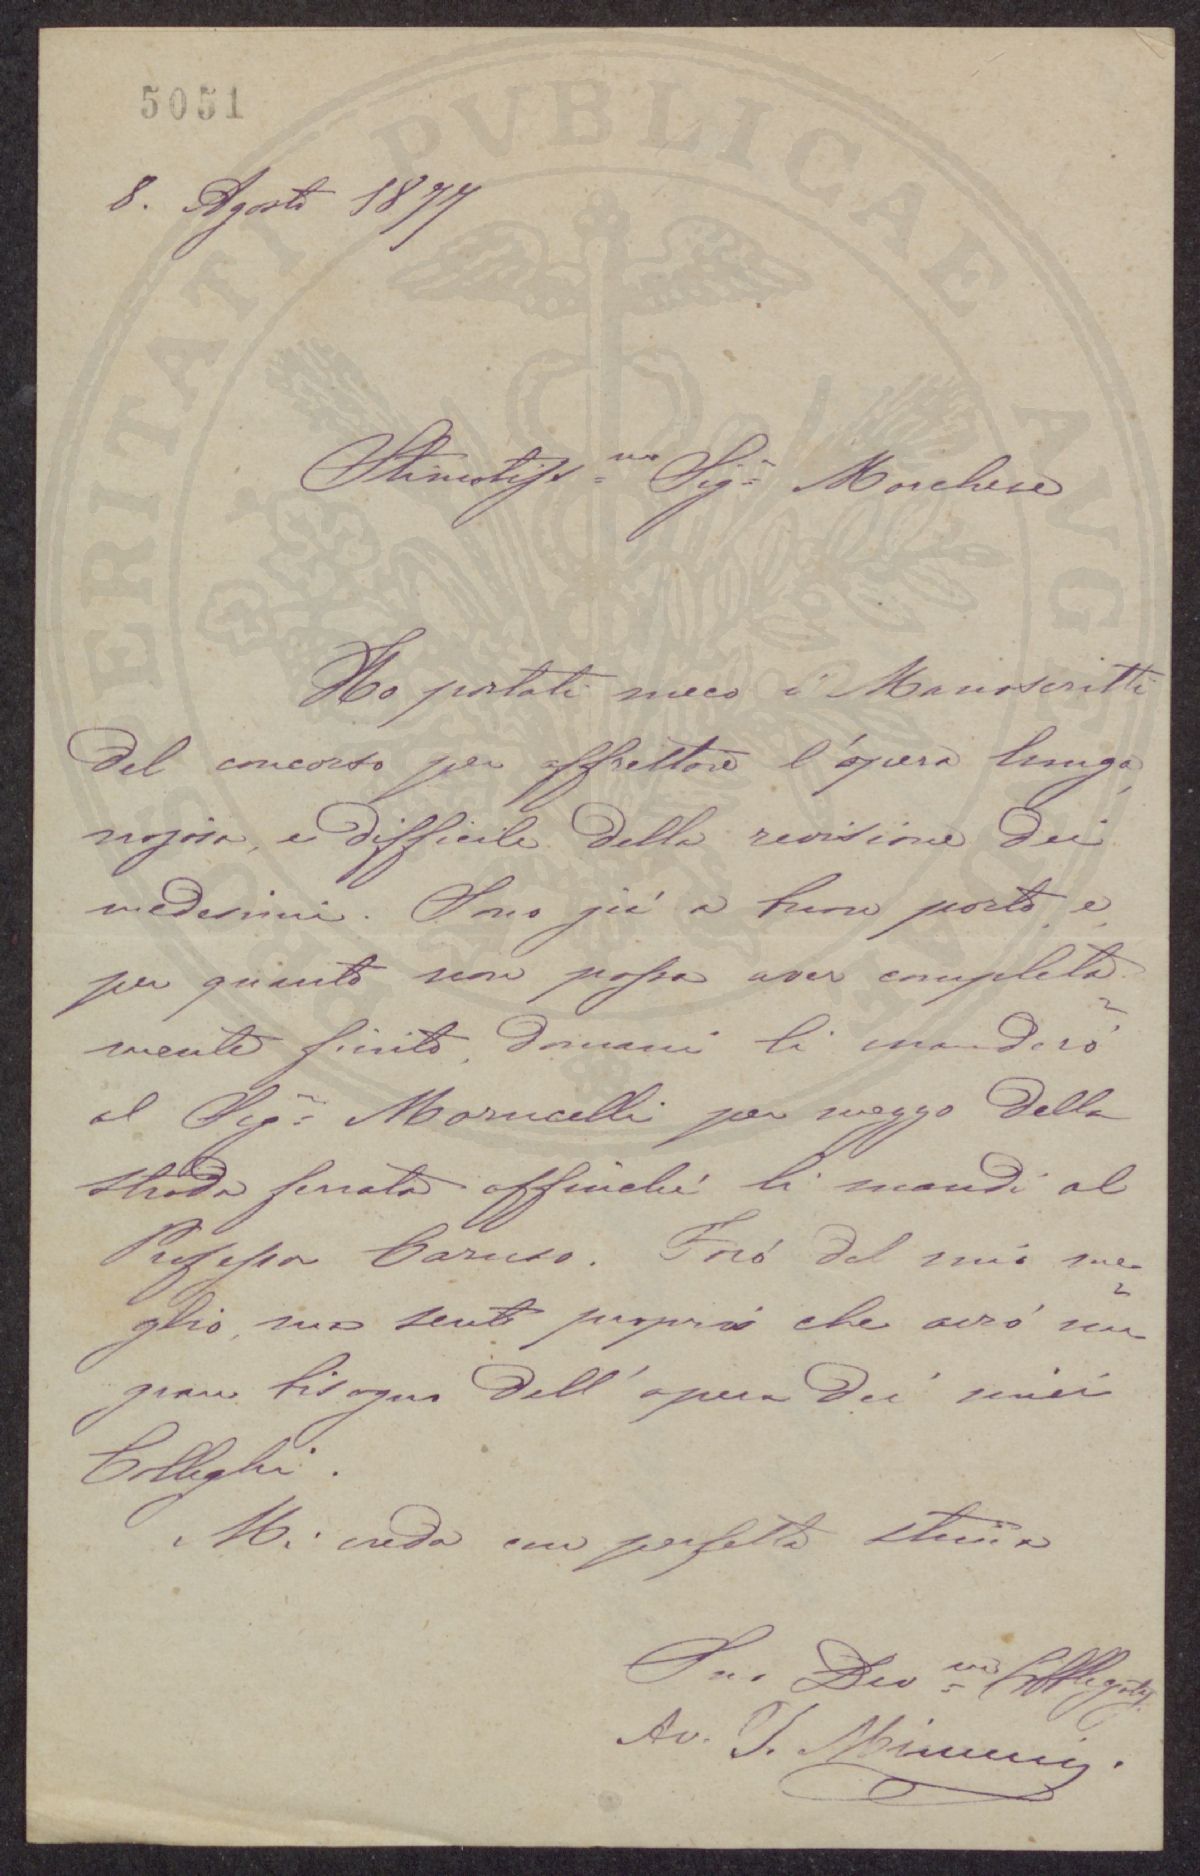 5051
8. Agosto 1877
Stimatiss.mo Sig.r Marchese
Ho portati meco i Manoscritti
del concorso per affrettare l'opera lunga,
nojosa, e difficile della revisione dei
medesimi. Sono già a buon porto, e
per quanto non possa aver completa
mente finito, domani li manderò
al Sig.r Marucelli per mezzo della
strada ferrata affinché li mandi al
Professor Caruso. Farò del mio me
glio, ma sento proprio che avrò un
gran bisogno dell'opera dei miei
Colleghi.
Mi creda con perfetta stima
Suo Dev.mo
Av.
PVBLICAE